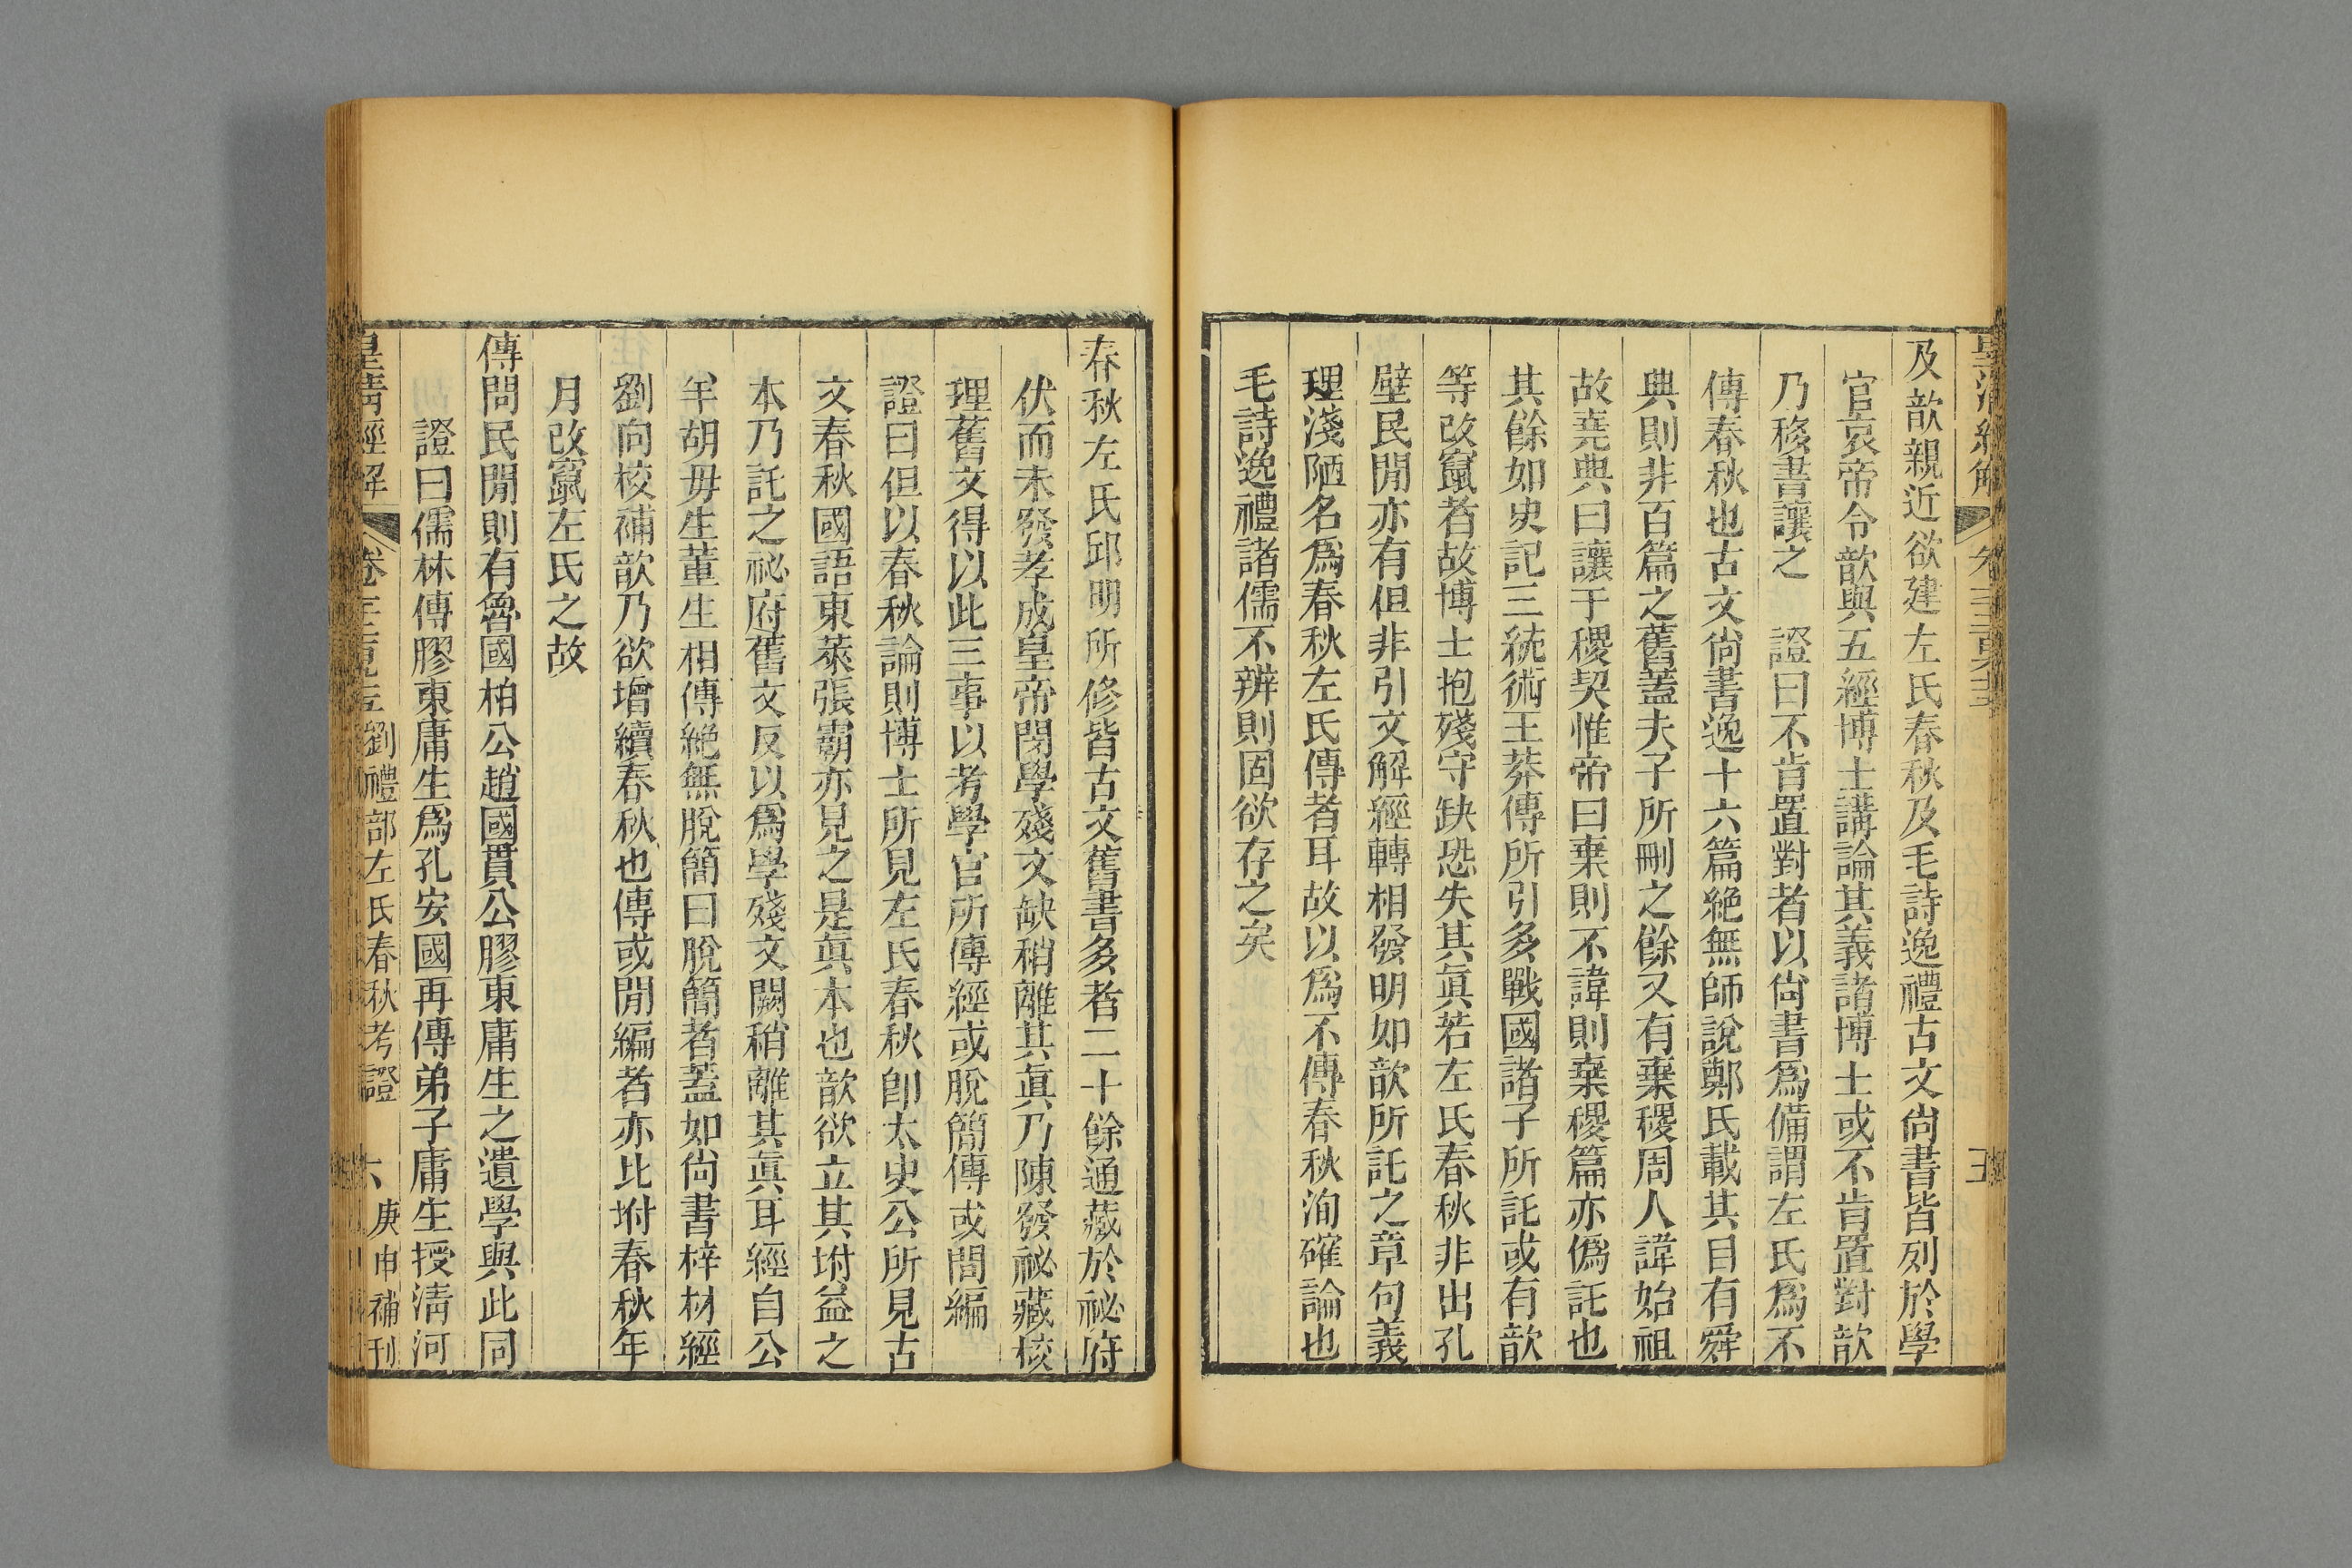 及歆親近欲建左氏春秋及毛詩逸禮古文尚書皆列於學
官哀帝令歆與五經博士講論其義諸博士或不肯置對歆
乃移書讓之 證曰不肯置對者以尚書爲備謂左氏爲不
傳春秋也古文尚書逸十六篇絶無師說鄭氏載其目有舜
典則非百篇之舊蓋夫子所刪之餘又有棄稷周人諱始祖
故堯典曰讓于稷契惟帝曰棄則不諱則棄稷篇亦僞託也
其餘如史記三統術王莽傳所引多戰國諸子所託或有歆
等改竄者故博士抱殘守缺恐失其眞若左氏春秋非出孔
壁民閒亦有但非引文解經轉相發明如歆所託之章句義
理淺陋名爲春秋左氏傳者耳故以爲不傳春秋洵確論也
毛詩逸禮諸儒不辨則固欲存之矣
春秋左氏邱明所修皆古文舊書多者二十餘通藏於祕府
伏而未發孝成皇帝閔學殘文缺稍離其眞乃陳發祕藏校
理舊文得以此三事以考學官所傳經或脫簡傳或間編
證曰但以春秋論則博士所見左氏春秋卽太史公所見古
文春秋國語東萊張霸亦見之是眞本也歆欲立其坿益之
本乃託之祕府舊文反以爲學殘文闕稍離其眞耳經自公
羊胡毋生董生相傳絶無脫簡曰脫簡者蓋如尚書梓材經
劉向校補歆乃欲增續春秋也傳或閒編者亦比坿春秋年
月改竄左氏之故
傳問民閒則有魯國柏公趙國貫公膠東庸生之遺學與此同
證曰儒林傳膠東庸生爲孔安國再傳弟子庸生授淸河
皇淸經解
劉禮部左氏春秋考證
六
庚申補刊